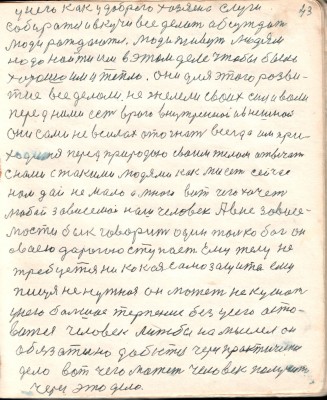 у него как у доброго хозяина слуги
43
собирати в кучи все делат обсуждат
люди рождаютца. люди живут людям
надо найти им в этом деле чтобы было
хорошо им и тепло. они для этого розви-
тие все делали. не жилели своих сил и воли
перед ними сет врого внутренной и внешной
они сами не в силах отогнат всегда им при-
ходится перед природою своим телом отвечат
с нами с такими людями как мы сет сейчас
нам дай не мало а много вот чего хочет
любой зависемой наш человек А в не зависе-
мости бык говорит один только бог он
своею дорогою ступает Ему телу не
требуется ни какоя самозащита ему
пища не нужноя он может не кушат
у него большое терпение без чего оста-
ватся человек
обязатыно добыты через практическое
дело вот чего может человек получит
через это дело.